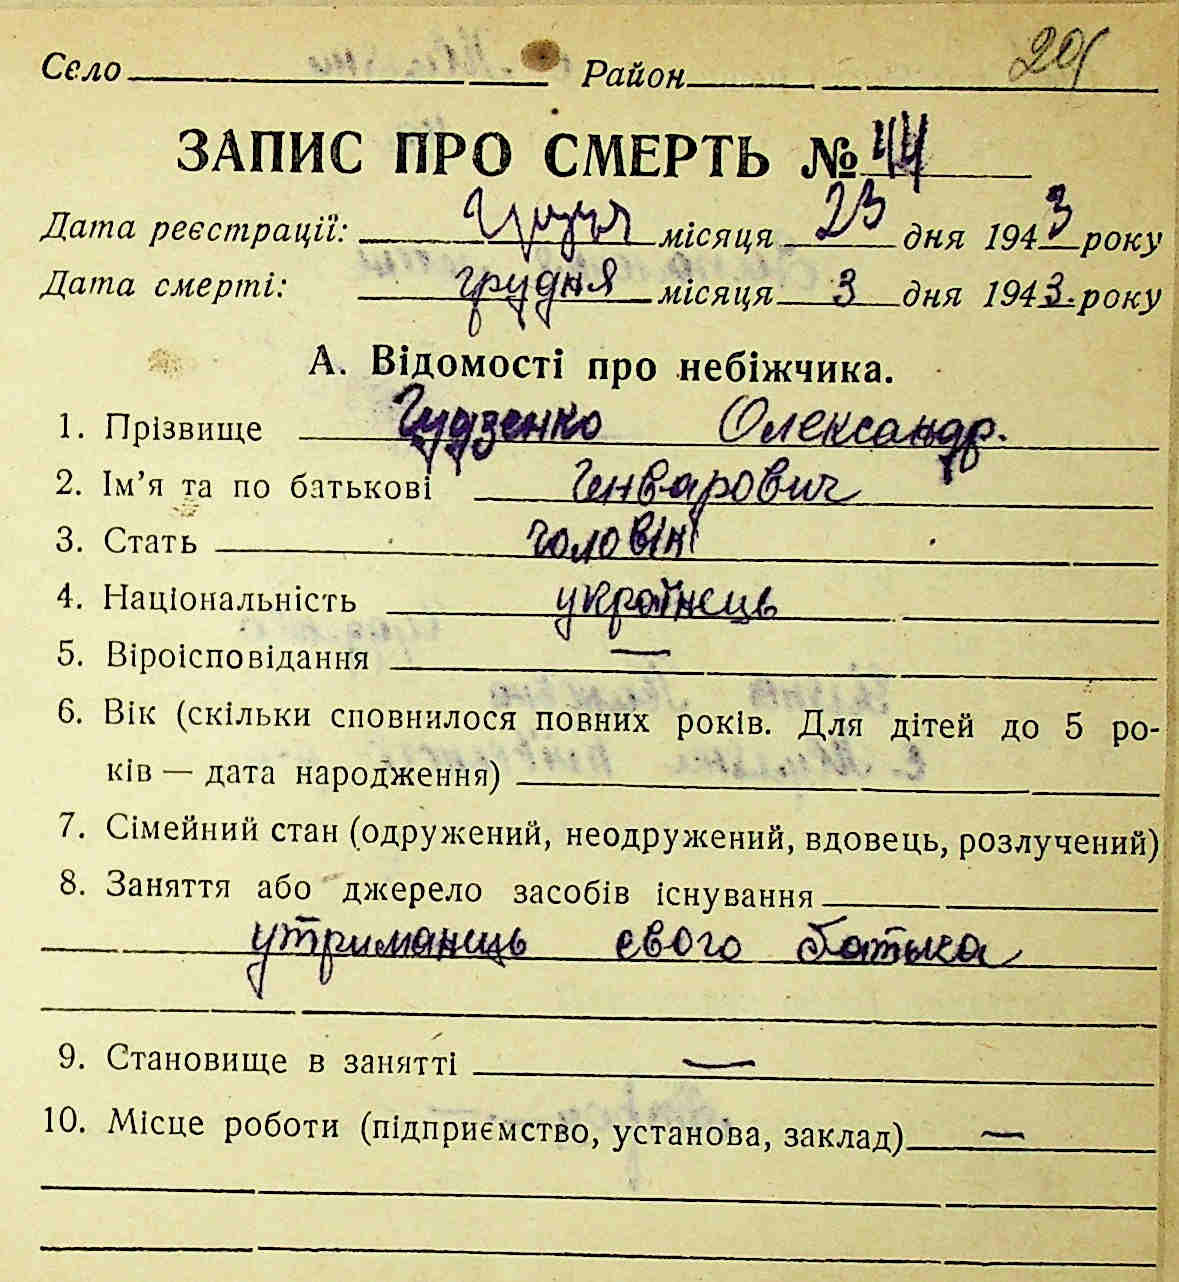 Село Район 201
ЗАПИС ПРО СМЕРТЬ № 44
Дата реєстрації: місяця 23 дня 1943 року
Дата смерті: грудня місяця 3 дня 1943. року
А. Відомості про небіжчика.
1. Прізвище Гудзенко Олександр.
2. Ім’я та по батькові Генварович
3. Стать чоловік
4. Національність українець
5. Віроісповідання —
6. Вік (скільки сповнилося повних років. Для дітей до 5 ро-
ків — дата народження)
7. Сімейний стан (одружений, неодружений, вдовець, розлучений)
8. Заняття або джерело засобів існування
утриманець свого батька
9. Становище в занятті —
10. Місце роботи (підприємство, установа, заклад) —